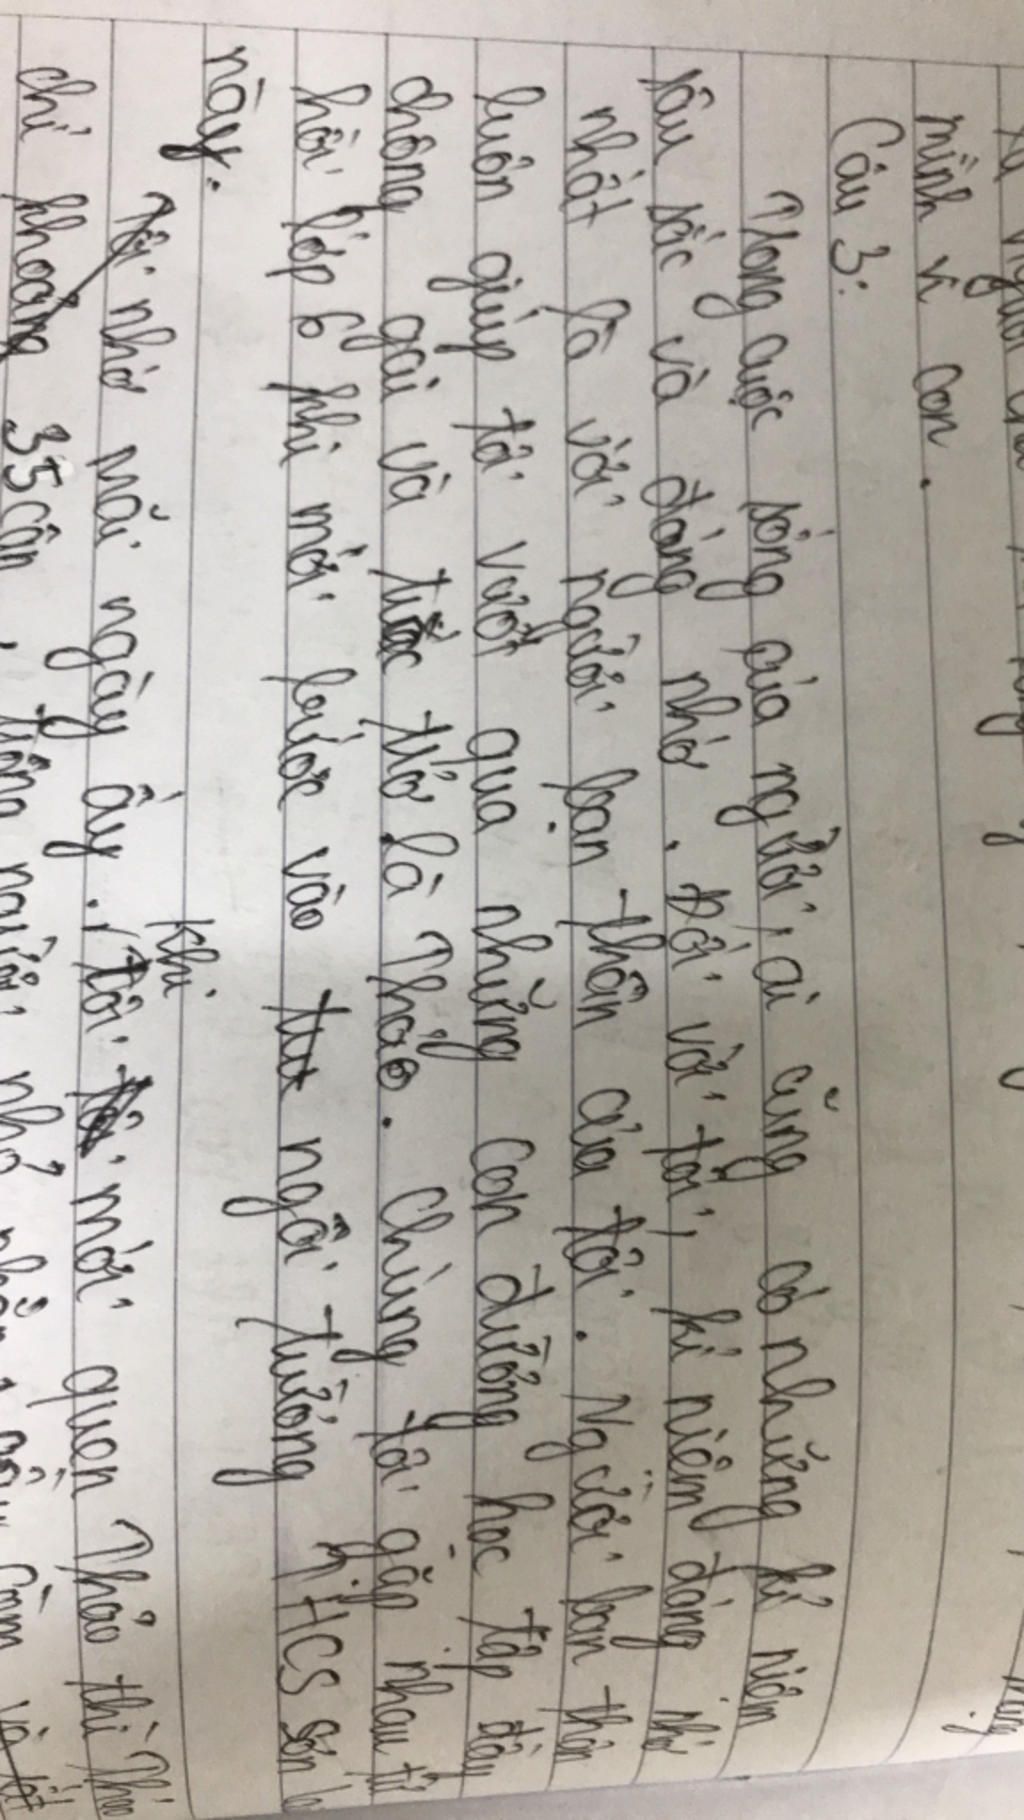 mình vì con.
Câu 3:
Trong cuộc sống của người, ai cũng có những kỉ niệm
sâu sắc và đáng nhớ. Đối với tôi, kỉ niệm đáng nhớ
nhất là với người bạn thân của tôi. Người bạn thân
luôn giúp tôi vượt qua những con đường học tập đầy
chông gai và trắc trở là Thảo. Chúng tôi gặp nhau từ
hồi lớp 6 khi mới bước vào ngôi trường THCS Sơn
này.
khi
Tôi nhớ mãi ngày ấy. tôi mới quen Thảo thì Thảo
chỉ khoảng 35 cân, người nhỏ